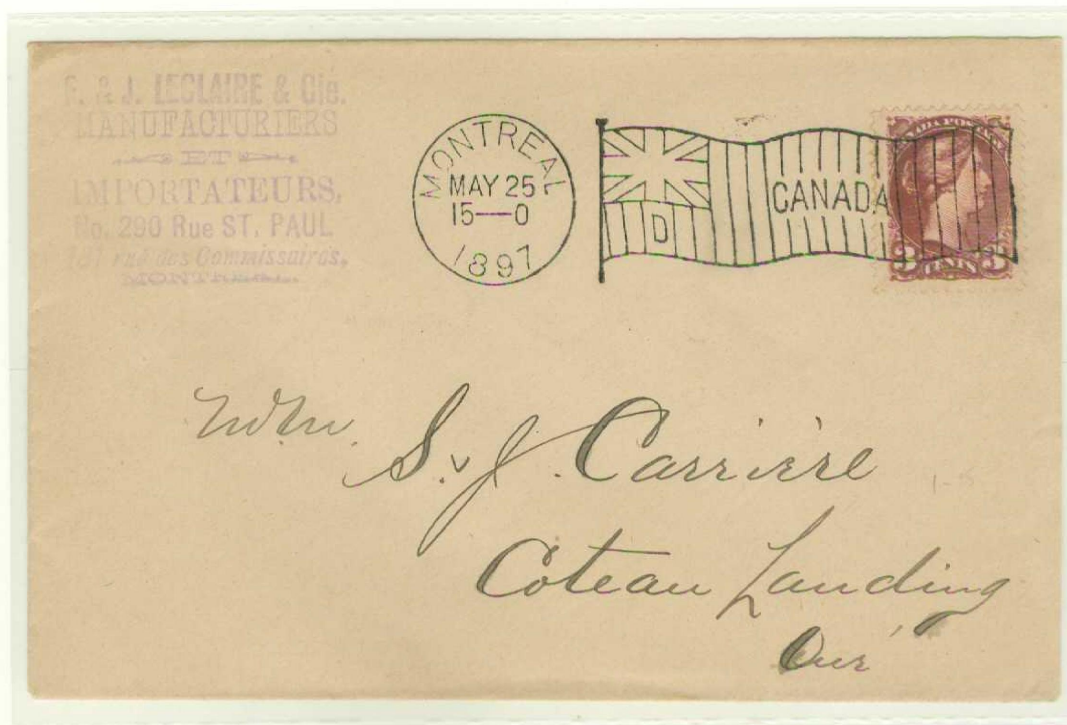 F. & J. LECLAIRE & Cie.
MANUFACTURIERS
ET
IMPORTATEURS,
No. 290 Rue ST. PAUL
131 rue des Commissaires,
MONTREAL.
MONTREAL
MAY 25
15—0
1897
D
CANADA
CANADA POSTAGE
3 CENTS 3
S. & J. Carrière
Coteau Landing
Que